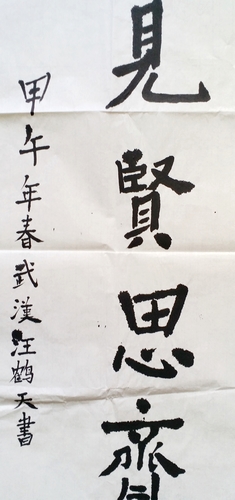 見賢思齊
甲午年春武漢汪鶴天書